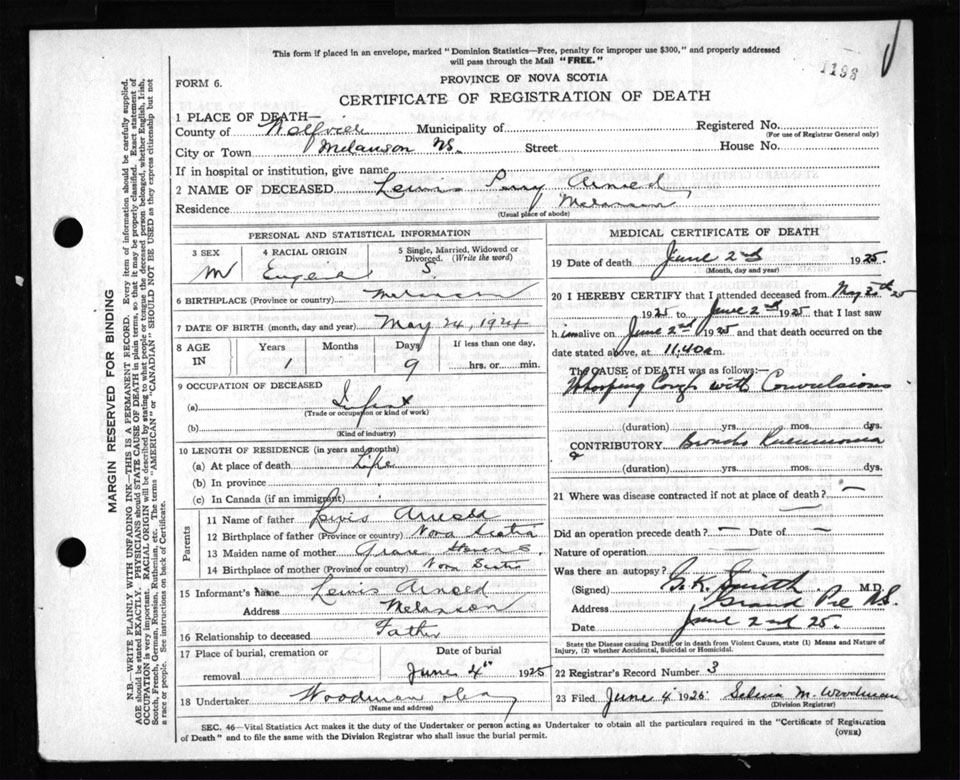 This form if placed in an envelope, marked "Dominion Statistics—Free, penalty for improper use $300," and properly addressed
will pass through the Mail "FREE."
1193
FORM 6.
PROVINCE OF NOVA SCOTIA
CERTIFICATE OF REGISTRATION OF DEATH
1 PLACE OF DEATH—
County of Wolfville Municipality of Registered No.
(For use of Registrar General only)
City or Town Melanson NS. Street House No.
If in hospital or institution, give name
2 NAME OF DECEASED Lewis Perry Arnold
Residence Melanson
(Usual place of abode)
PERSONAL AND STATISTICAL INFORMATION
3 SEX 4 RACIAL ORIGIN 5 Single, Married, Widowed or Divorced. (Write the word)
M English S
6 BIRTHPLACE (Province or country) Melanson
7 DATE OF BIRTH (month, day and year) May 24, 1924
8 AGE IN Years Months Days If less than one day,
1 9 hrs. or min.
9 OCCUPATION OF DECEASED
(a) Infant
(Trade or occupation or kind of work)
(b)
(Kind of industry)
10 LENGTH OF RESIDENCE (in years and months)
(a) At place of death Life
(b) In province
(c) In Canada (if an immigrant)
Parents
11 Name of father Lewis Arnold
12 Birthplace of father (Province or country) Nova Scotia
13 Maiden name of mother Grace
14 Birthplace of mother (Province or country) Nova Scotia
15 Informant's name Lewis Arnold
Address Melanson
16 Relationship to deceased Father
17 Place of burial, cremation or removal Date of burial
June 4th 1925
18 Undertaker Woodman
(Name and address)
MEDICAL CERTIFICATE OF DEATH
19 Date of death June 2nd 1925.
(Month, day and year)
20 I HEREBY CERTIFY that I attended deceased from May 20th 25
1925 to June 2nd 1925 that I last saw
him alive on June 2nd 1925 and that death occurred on the
date stated above, at 11.40 a m.
The CAUSE of DEATH was as follows:—
Whooping Cough with Convulsions
(duration) yrs. mos. dys.
CONTRIBUTORY Broncho Pneumonia
(duration) yrs. mos. dys.
21 Where was disease contracted if not at place of death? —
Did an operation precede death? — Date of —
Nature of operation
Was there an autopsy?
(Signed) Smith M.D.
Address Grand Pre N.S.
Date June 2nd 25.
State the Disease causing Death, or in death from Violent Causes, state (1) Means and Nature of
Injury, (2) whether Accidental, Suicidal or Homicidal.
22 Registrar's Record Number 3
23 Filed June 4 1925 Selina M. Woodman
(Division Registrar)
SEC. 46—Vital Statistics Act makes it the duty of the Undertaker or person acting as Undertaker to obtain all the particulars required in the "Certificate of Registration
of Death" and to file the same with the Division Registrar who shall issue the burial permit.
(OVER)
MARGIN RESERVED FOR BINDING
N.B.—WRITE PLAINLY WITH UNFADING INK—THIS IS A PERMANENT RECORD. Every item of information should be carefully supplied.
AGE should be stated EXACTLY. PHYSICIANS should STATE CAUSE OF DEATH in plain terms, so that it may be properly classified. Exact statement of
OCCUPATION is very important. RACIAL ORIGIN will be described by stating to what people or tongue the deceased person belonged, whether English, Irish,
Scotch, French, German, Russian, Ruthenian, etc. The terms "AMERICAN" or "CANADIAN" SHOULD NOT BE USED as they express citizenship but not
a race or people. See instructions on back of Certificate.